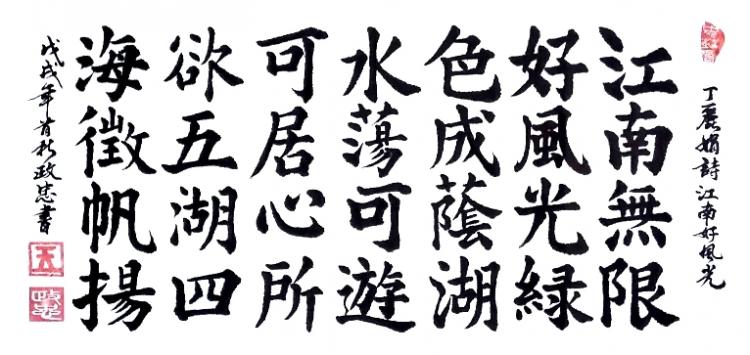 丁麗娟詩 江南好風光
江南無限
好風光綠
色成蔭湖
水蕩可遊
可居心所
欲五湖四
海徵帆揚
戊戌年首秋政忠書